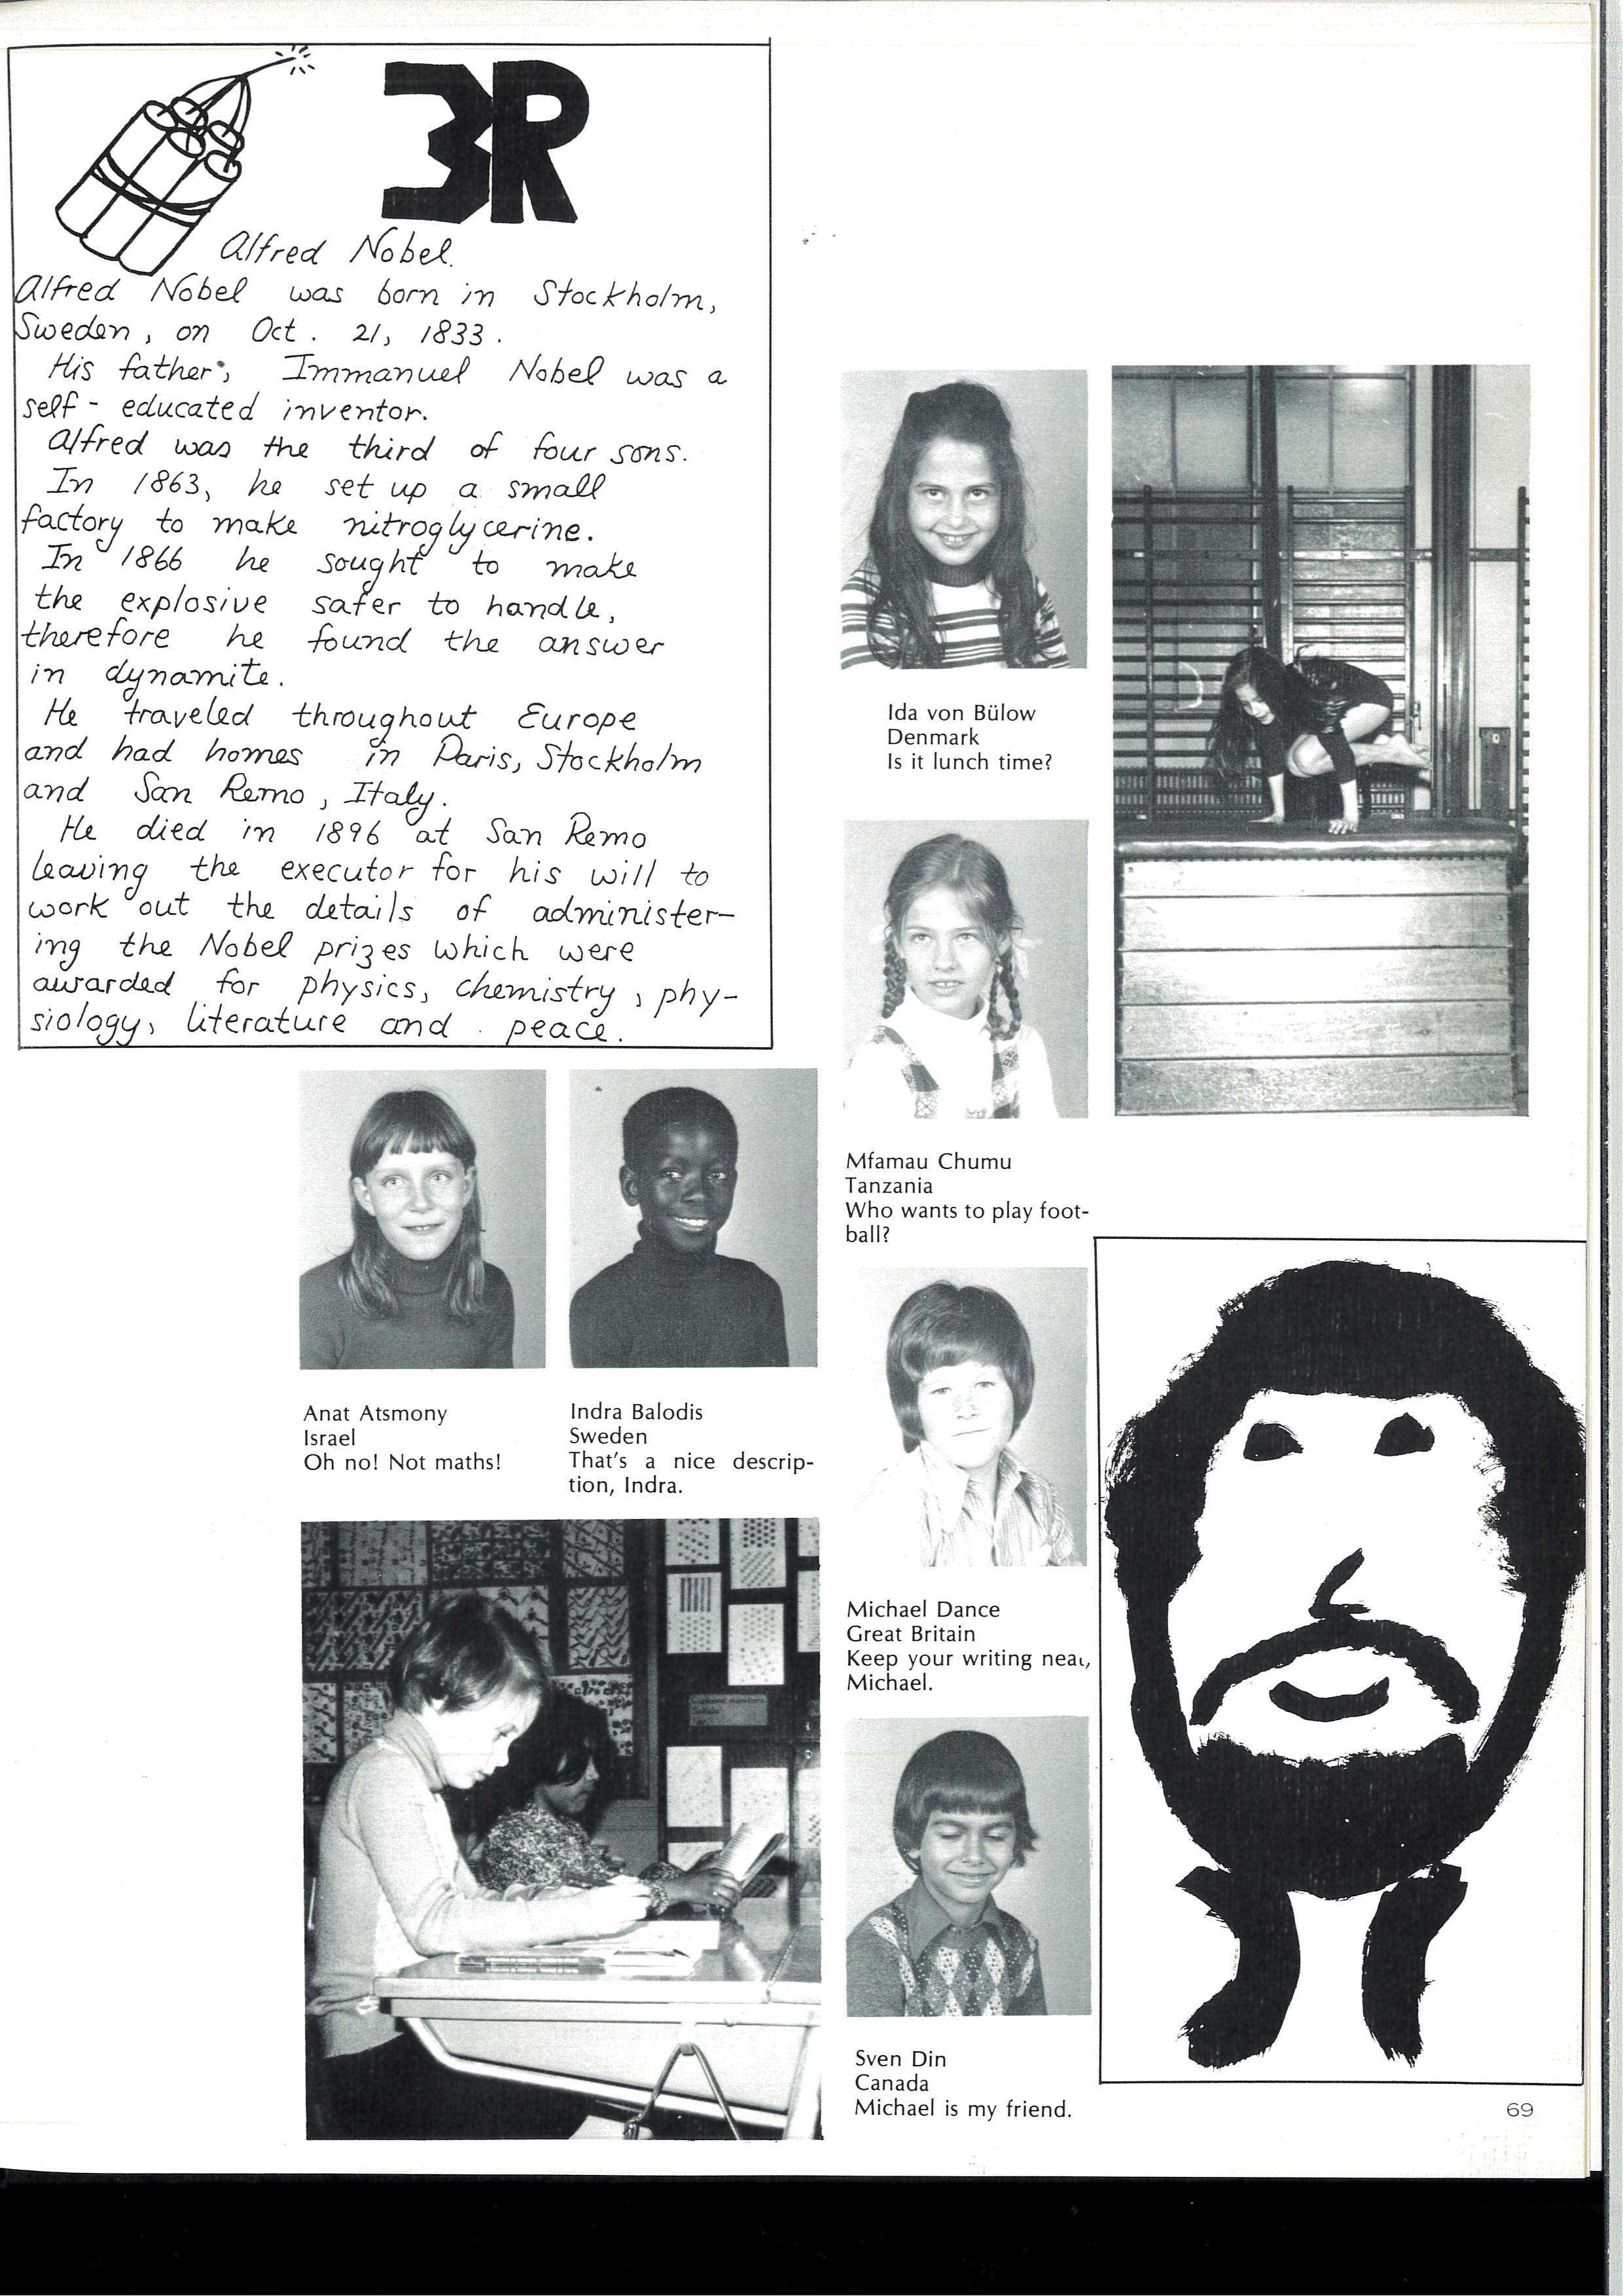 3R
Alfred Nobel.
Alfred Nobel was born in Stockholm,
Sweden, on Oct. 21, 1833.
His father, Immanuel Nobel was a
self-educated inventor.
Alfred was the third of four sons.
In 1863, he set up a small
factory to make nitroglycerine.
In 1866 he sought to make
the explosive safer to handle,
therefore he found the answer
in dynamite.
He traveled throughout Europe
and had homes in Paris, Stockholm
and San Remo, Italy.
He died in 1896 at San Remo
leaving the executor for his will to
work out the details of administer-
ing the Nobel prizes which were
awarded for physics, chemistry, phy-
siology, literature and peace.
Ida von Bülow
Denmark
Is it lunch time?
Mfamau Chumu
Tanzania
Who wants to play foot-
ball?
Anat Atsmony
Israel
Oh no! Not maths!
Indra Balodis
Sweden
That's a nice descrip-
tion, Indra.
Michael Dance
Great Britain
Keep your writing neat,
Michael.
Sven Din
Canada
Michael is my friend.
69